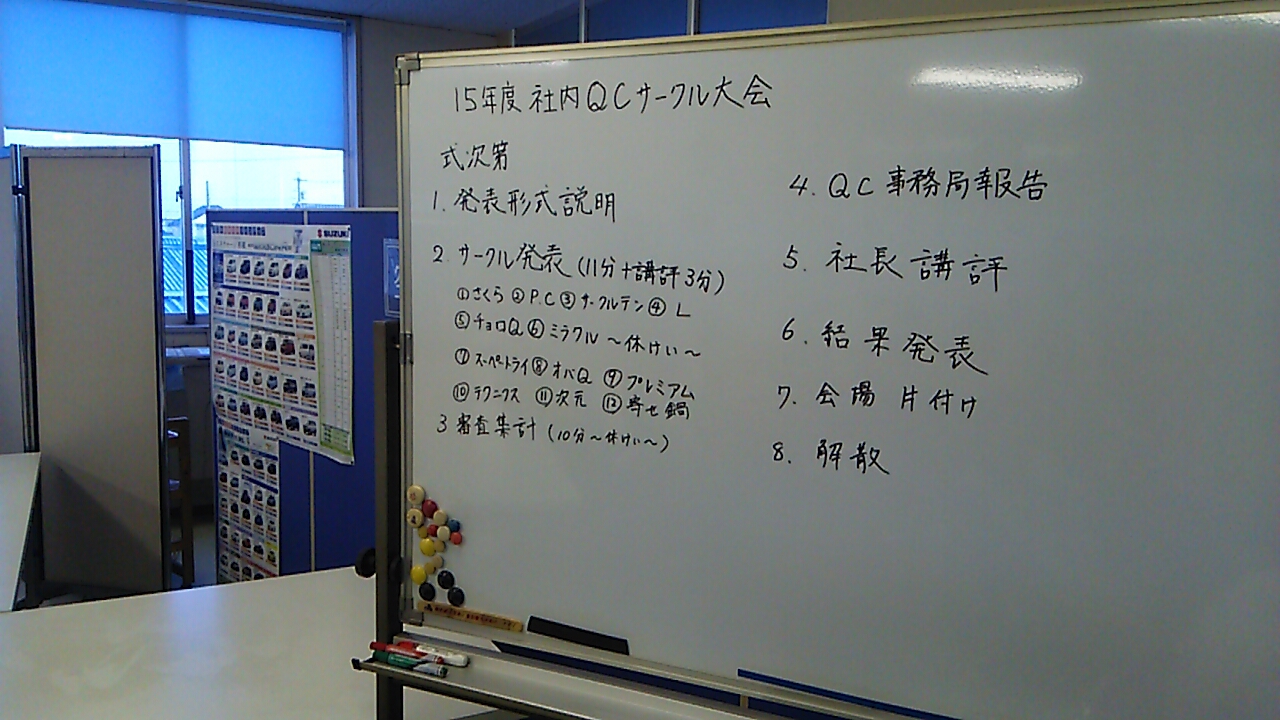 15年度 社内QCサークル大会
式次第
1. 発表形式説明
2. サークル発表(11分+講評3分)
①さくら ②P.C ③サークルテン ④L
⑤チョロQ ⑥ミラクル ~休けい~
⑦スーペートライ ⑧オバQ ⑨プレミアム
⑩テクニクス ⑪次元 ⑫寄せ鍋
3 審査集計(10分~休けい~)
4. QC事務局報告
5. 社長講評
6. 結果発表
7.会場片付け
8. 解散
SUZUKI